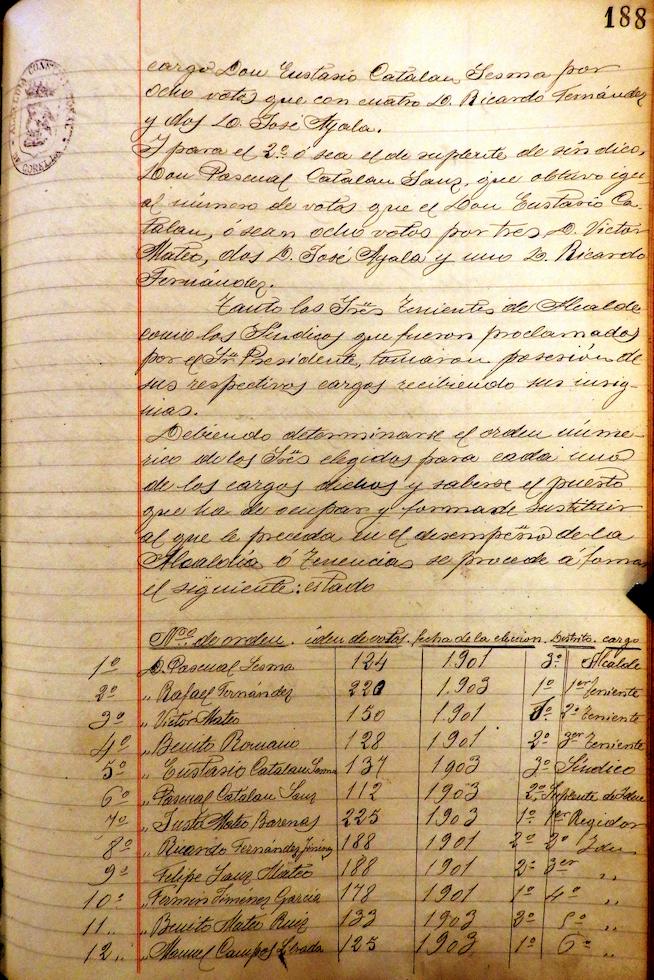 188
ALCALDIA CONSTITUCIONAL DE CORELLA
cargo Don Eustasio Catalan Sesma por
ocho votos que con cuatro D. Ricardo Fernández
y dos D. José Ayala.
Y para el 2º ó sea el de suplente de síndico,
Don Pascual Catalan Sanz, que obtuvo igu
al número de votos que el Don Eustasio Ca-
talan, ó sean ocho votos por tres D. Victor
Mateo, dos D. José Ayala y uno D. Ricardo
Fernández.
Tanto los Sres Tenientes de Alcalde
como los Síndicos que fueron proclamados
por el Sr Presidente, tomaron posesión de
sus respectivos cargos recibiendo sus insig-
nias.
Debiendo determinarse el orden núme-
rico de los Sres elegidos para cada uno
de los cargos dichos y saberse el puesto
que ha de ocupar y forma de sustituir
al que le preceda en el desempeño de la
Alcaldía ó Tenencias se procede á formar
el siguiente: estado
Nos de orden. iden de votos. fecha de la eleccion. Distrito. cargo
1º D. Pascual Sesma 124 1.901 3º Alcalde
2º „ Rafael Fernández 220 1.903 1º 1er Teniente
3º „ Victor Mateo 150 1.901 2º Teniente
4º „ Benito Romano 128 1901 2º 3er Teniente
5º „ Eustasio Catalan Sesma 137 1903 3º Síndico
6º „ Pascual Catalan Sanz 112 1903 2º Suplente de Idem
7º „ Justo Mateo Barenas 225 1903 1º 1er Regidor
8º „ Ricardo Fernández Jiménez 188 1901 2º 2º Idem
9º „ Felipe Sanz Mateo 188 1901 2º 3er „
10º „ Fermin Jimenez Garcia 178 1901 1º 4º „
11. „ Benito Mateo Ruiz 133 1903 3º 5º „
12. „ Manuel Campos 125 1903 1º 6º „